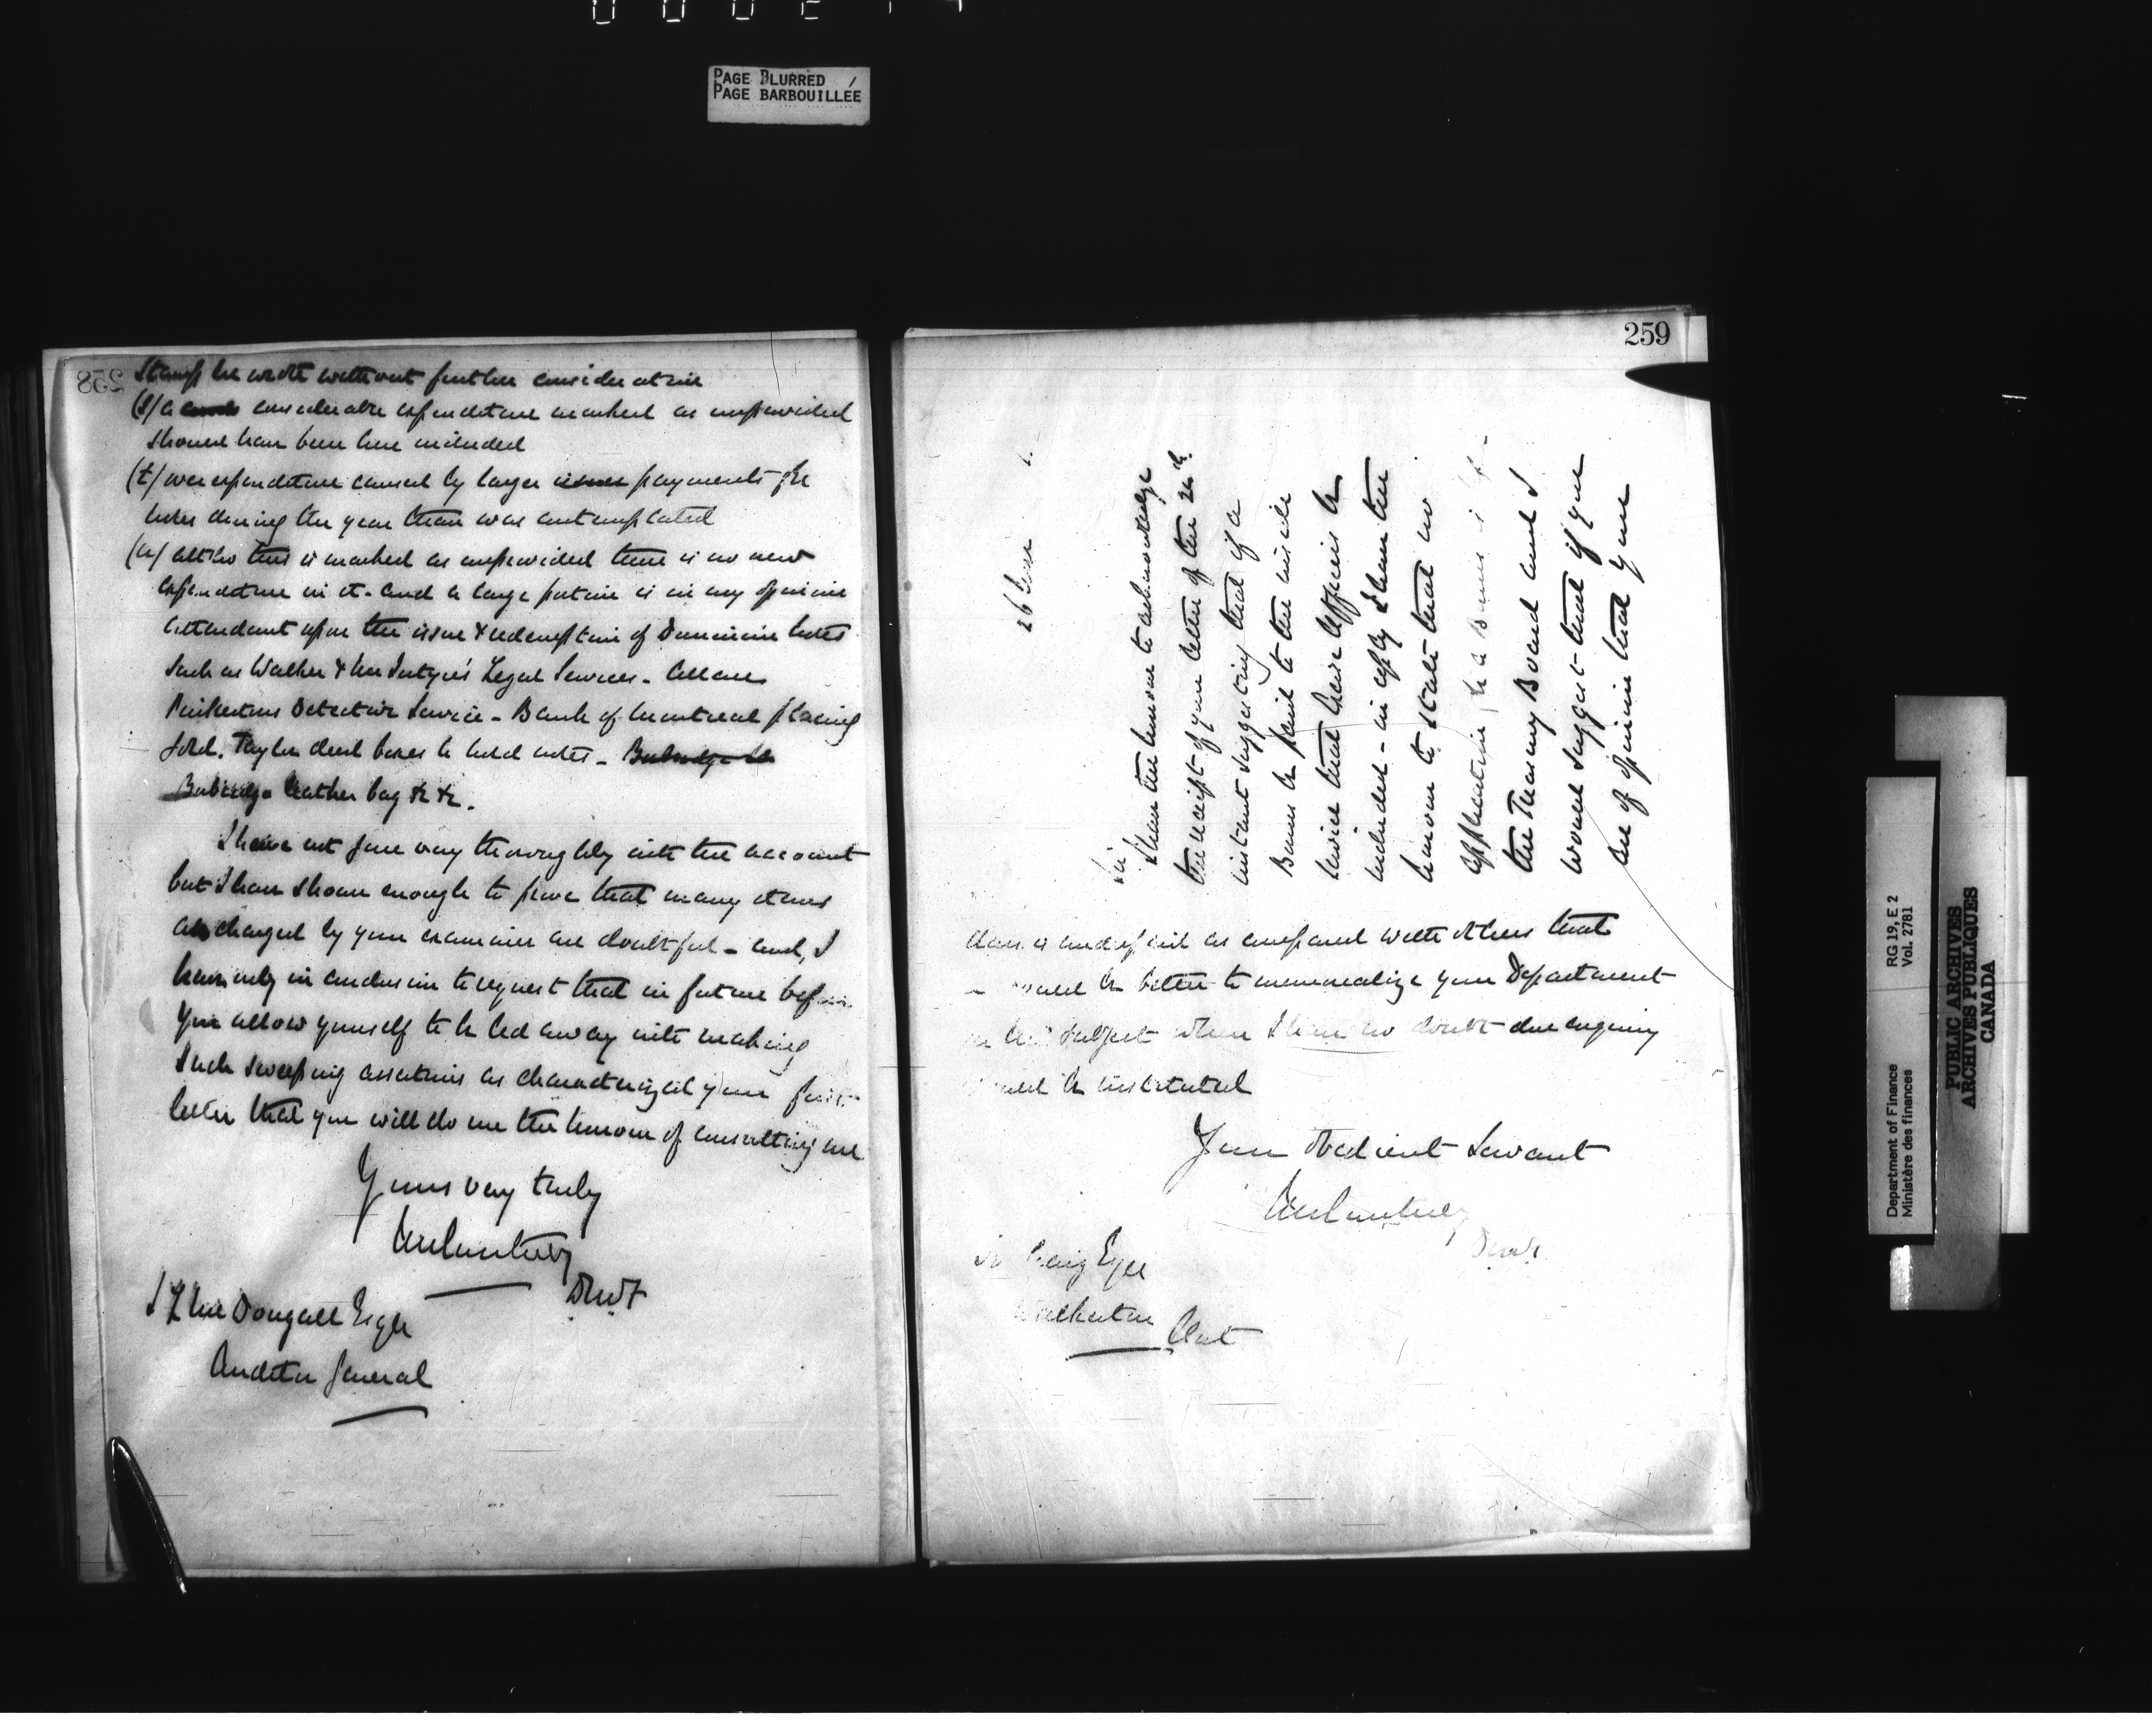 PAGE BLURRED
PAGE BARBOUILLÉE
258
Stamps he wrote without further consideration
(s) a considerable expenditure marked as unprovided
should have been here included
(t) over expenditure caused by larger issues payments for
notes during the year than was contemplated
(u) altho this is marked as unprovided there is no new
expenditure in it - and a large portion is in my opinion
attendant upon the issue & redemption of Dominion notes
such as Walker & McIntyre's Legal Services - Allan
Pinkertons Detective Service - Bank of Montreal placing
Gold. Taylor deed boxes to hold notes -
Burbidge leather bag &c &c.
I have not gone very thoroughly into the account
but I have shown enough to prove that many items
as charged by your examiner are doubtful - and, I
have only in conclusion to request that in future before
you allow yourself to be led away into making
such sweeping assertions as characterized your first
letter that you will do me the honour of consulting me
Yours very truly
JMCourtney
DMF
J L McDougall Esqre
Auditor General
259
26
Sir
I have the honour to acknowledge
the receipt of your letter of the 24th
instant suggesting that if a
Bonus be paid to the inside
service that
included - in reply I have the
honour to state that no
application for a Bonus is
the Treasury Board and I
would suggest that if you
are of opinion that your
class is underpaid as compared with others that
would be better to memorialize your Department
on the subject when I have no doubt due enquiry
would be instituted
Your obedient Servant
JMCourtney
DMF.
Craig Esqre
Walkerton
Ont
Department of Finance RG 19, E 2
Ministère des finances Vol. 2781
PUBLIC ARCHIVES
ARCHIVES PUBLIQUES
CANADA